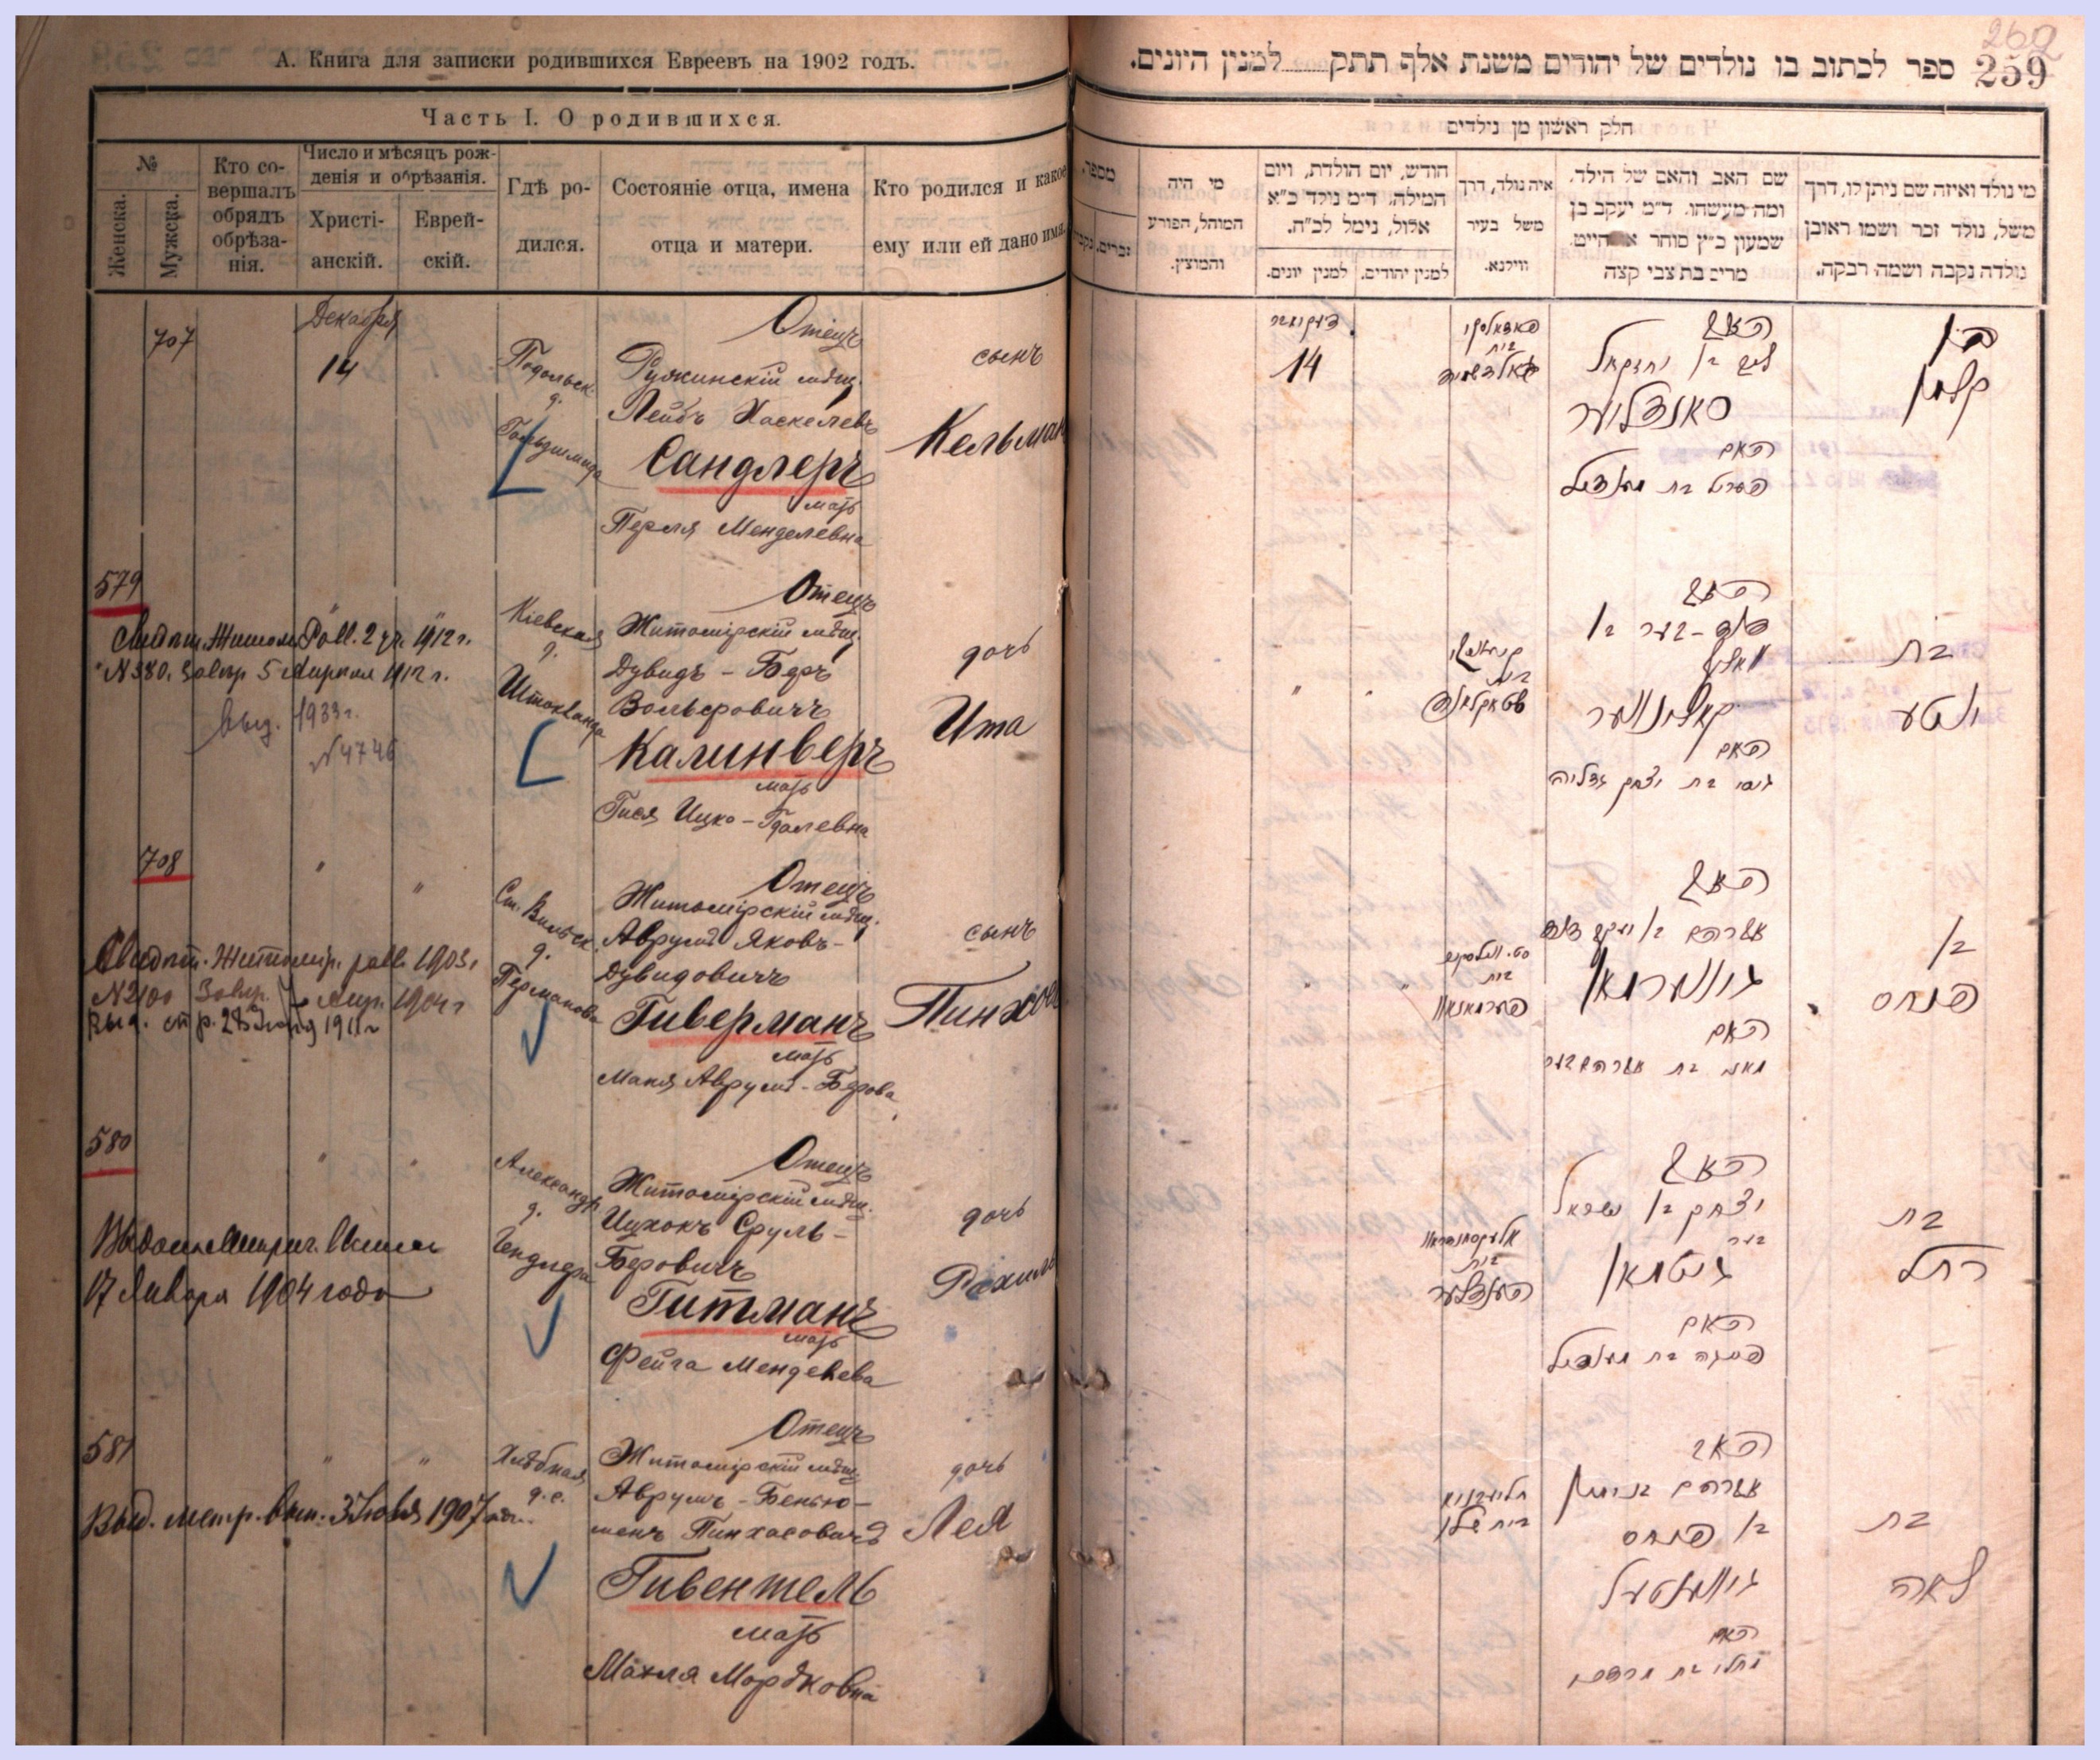 А. Книга для записки родившихся Евреевъ на 1902 годъ.
Часть I. О родившихся.
№
Женска.
Мужска.
Кто со-
вершалъ
обрядъ
обрѣза-
нія.
Число и мѣсяцъ рож-
денія и обрѣзанія.
Христі-
анскій.
Еврей-
скій.
Гдѣ ро-
дился.
Состояніе отца, имена
отца и матери.
Кто родился и какое
ему или ей дано имя.
707
Декабря
14
Подольск.
д.
Гольдшмида
Отецъ
Ружинскій мѣщ.
Лейбъ Хаскелевъ
Сандлеръ
мать
Перля Менделевна
сынъ
Кельман
579
Кіевская
д.
Штокланда
Отецъ
Житомірскій мѣщ.
Дувидъ - Беръ
Вольфовичъ
Калинверъ
мать
Гися Ицко - Гдалевна
дочь
Ита
Свидѣт. Житом. Равв. 2 1912 г.
№ 380. Завѣр 5 Апреля 1912 г.
выд. 1933 г.
№ 4746
708
Ст. Вильск.
д.
Германова
Отецъ
Житомірскій мѣщ.
Аврумъ Яковъ-
Дувидовичъ
Гиверманъ
мать
Маня Аврумъ - Берова
сынъ
Пинхос
Свидѣт. Житомір. равв. 1903 г
№ 2100 Завѣр. 7 Апр. 1904 г
Выд. 28 Іюня 1911 г
580
Александр.
д.
Гендлера
Отецъ
Житомірскій мѣщ.
Ицхокъ Сруль-
Беровичъ
Гитманъ
мать
Фейга Менделева
дочь
Рахиль
17 Января 1904 года
581
Хлѣбная
д. с.
Отецъ
Житомірскій мѣщ
Аврумъ - Бенью-
менъ Пинхасовичъ
Гивентель
мать
Махля Мордковна
дочь
Лея
Выд. метр. вып. 3 Іюля 1907
260
259
ספר לכתוב בו נולדים של יהודים משנת אלף תתק למנין היונים.
חלק ראשון מן נולדים
מי נולד ואיזה שם ניתן לו, דרך
משל, נולד זכר ושמו ראובן
נולדה נקבה ושמה רבקה.
שם האב והאם של הילד,
ומה מעשהו. ד״מ יעקב בן
שמעון כ״ץ סוחר
מרים בת צבי קצה
איה נולד, דרך
משל בעיר
ווילנא.
חודש, יום הולדת, ויום
המילה. ד״מ נולד כ״א
אלול, נימל לכ״ח.
למנין יהודים.
למנין יונים.
מי היה
המוהל, הפורע
והמוצץ.
מספר.
זכרים.
בן
קלמן
האב
ליב בן יחזקאל
סאנדלער
האם
פערל בת מענדיל
14
בת
איטע
האב
דוד - בער בן
וואלף
קאלינווער
האם
גיסי בת יצחק גדליה
בן
פנחס
האב
אברהם בן יעקב דוד
גיווערמאן
האם
מאני בת אברהם בער
בת
רחל
האב
יצחק בן ישראל
בער
גיטמאן
האם
פייגה בת מענדיל
בת
לאה
האב
אברהם בנימין
בן פנחס
גיווענטעל
האם
מחלי בת מרדכי